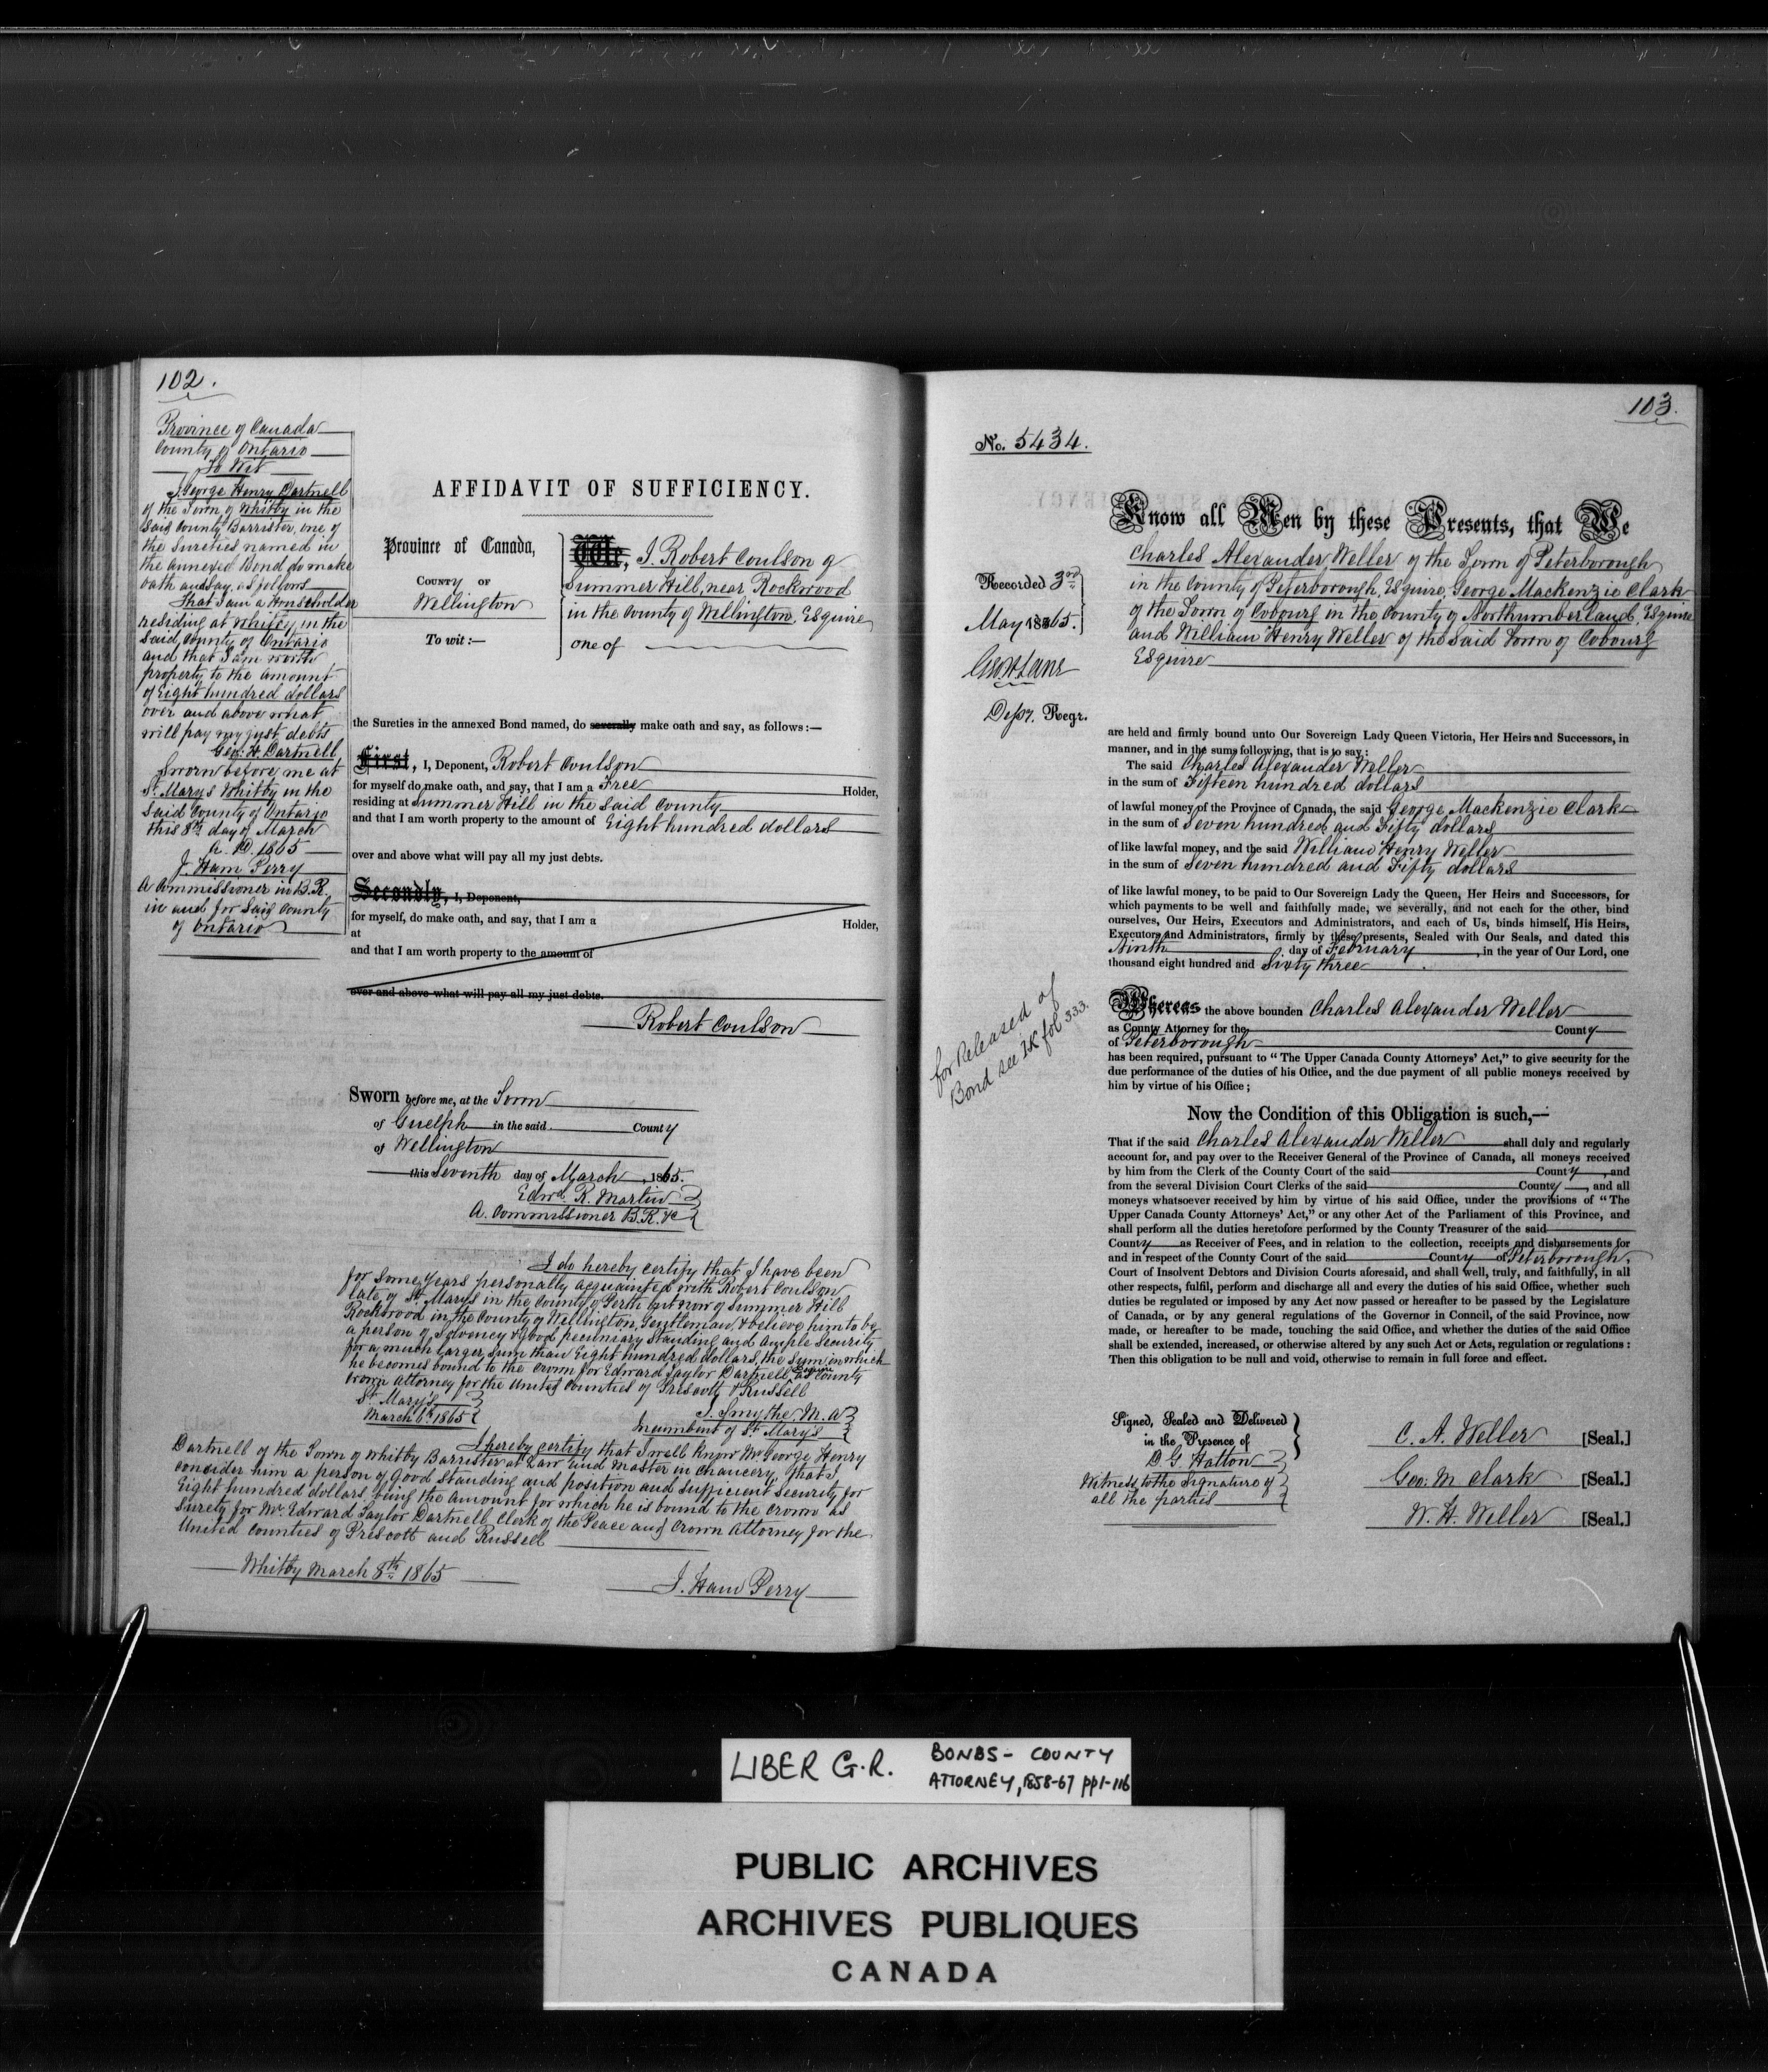 102.
Province of Canada
County of Ontario
To Wit
I George Henry Dartnell
of the Town of Whitby in the
Said County Barrister, one of
the Sureties named in
the annexed Bond do make
oath and say, as follows
That I am a Householder
residing at Whitby in the
Said County of Ontario
and that I am worth
property to the amount
of Eight hundred dollars
over and above what
will pay my just debts
Geo: H. Dartnell
Sworn before me at
St. Marys Whitby in the
Said County of Ontario
this 8th day of March
A. D. 1865
J. Ham Perry
A Commissioner in B.R.
in and for Said County
of Ontario
AFFIDAVIT OF SUFFICIENCY.
Province of Canada,
COUNTY OF
Wellington
To wit:—
We, I. Robert Coulson of
Summer Hill, near Rockwood
in the County of Wellington, Esquire
one of
the Sureties in the annexed Bond named, do severally make oath and say, as follows:—
First, I, Deponent, Robert Coulson
for myself do make oath, and say, that I am a Free Holder,
residing at Summer Hill in the Said County
and that I am worth property to the amount of Eight hundred dollars
over and above what will pay all my just debts.
Secondly, I, Deponent,
for myself, do make oath, and say, that I am a Holder,
at
and that I am worth property to the amount of
over and above what will pay all my just debts.
Robert Coulson
Sworn before me, at the Town
of Guelph in the said County
of Wellington
this Seventh day of March, 1865.
Edwd. R. Martin
A. Commissioner B.R. &c
I do hereby certify that I have been
for Some years personally acquainted with Robert Coulson
late of St. Marys in the County of Perth but now of Summer Hill
Rockwood in the County of Wellington, Gentleman, & believe him to be
a person of Solvency & Good pecuniary Standing and Ample Security
for a much larger Sum than Eight hundred dollars, the Sum in which
he becomes bound to the Crown for Edward Taylor Dartnell Esquire as County
Crown Attorney for the United Counties of Prescott & Russell
St. Mary's
March 6th 1865
I. Smythe, M. A
Incumbent of St. Marys
I hereby certify that I well know Mr George Henry
Dartnell of the Town of Whitby Barrister at Law and Master in Chancery, that I
consider him a person of good Standing and position and Sufficient Security for
Eight hundred dollars being the Amount for which he is bound to the Crown as
Surety for Mr. Edward Taylor Dartnell Clerk of the Peace and Crown Attorney for the
United Counties of Prescott and Russell
Whitby March 8th 1865
J. Ham Perry
103.
No. 5434.
Recorded 3rd
May 1865.
Geo. H Lane
Depy. Regr.
for Released of
Bond see IK fol 333.
Know all Men by these Presents, that We
Charles Alexander Weller of the Town of Peterborough
in the County of Peterborough, Esquire, George Mackenzie Clark
of the Town of Cobourg in the County of Northumberland, Esquire
and William Henry Weller of the Said Town of Cobourg
Esquire
are held and firmly bound unto Our Sovereign Lady Queen Victoria, Her Heirs and Successors, in
manner, and in the sums following, that is to say:
The said Charles Alexander Weller
in the sum of Fifteen hundred dollars
of lawful money of the Province of Canada, the said George Mackenzie Clark
in the sum of Seven hundred and Fifty dollars
of like lawful money, and the said William Henry Weller
in the sum of Seven hundred and Fifty dollars
of like lawful money, to be paid to Our Sovereign Lady the Queen, Her Heirs and Successors, for
which payments to be well and faithfully made, we severally, and not each for the other, bind
ourselves, Our Heirs, Executors and Administrators, and each of Us, binds himself, His Heirs,
Executors and Administrators, firmly by these presents, Sealed with Our Seals, and dated this
Ninth day of February, in the year of Our Lord, one
thousand eight hundred and Sixty three.
Whereas the above bounden Charles Alexander Weller
as County Attorney for the County
of Peterborough
has been required, pursuant to "The Upper Canada County Attorneys' Act," to give security for the
due performance of the duties of his Office, and the due payment of all public moneys received by
him by virtue of his Office;
Now the Condition of this Obligation is such,—
That if the said Charles Alexander Weller shall duly and regularly
account for, and pay over to the Receiver General of the Province of Canada, all moneys received
by him from the Clerk of the County Court of the said County, and
from the several Division Court Clerks of the said County, and all
moneys whatsoever received by him by virtue of his said Office, under the provisions of "The
Upper Canada County Attorneys' Act," or any other Act of the Parliament of this Province, and
shall perform all the duties heretofore performed by the County Treasurer of the said
County as Receiver of Fees, and in relation to the collection, receipts and disbursements for
and in respect of the County Court of the said County of Peterborough,
Court of Insolvent Debtors and Division Courts aforesaid, and shall well, truly, and faithfully, in all
other respects, fulfil, perform and discharge all and every the duties of his said Office, whether such
duties be regulated or imposed by any Act now passed or hereafter to be passed by the Legislature
of Canada, or by any general regulations of the Governor in Council, of the said Province, now
made, or hereafter to be made, touching the said Office, and whether the duties of the said Office
shall be extended, increased, or otherwise altered by any such Act or Acts, regulation or regulations:
Then this obligation to be null and void, otherwise to remain in full force and effect.
Signed, Sealed and Delivered
in the Presence of
D G Hatton
Witness to the Signature of
all the parties
C. A. Weller [Seal.]
Geo: M Clark [Seal.]
W. H. Weller [Seal.]
LIBER G.R. BONDS - COUNTY
ATTORNEY, 1858-67 pp1-116
PUBLIC ARCHIVES
ARCHIVES PUBLIQUES
CANADA